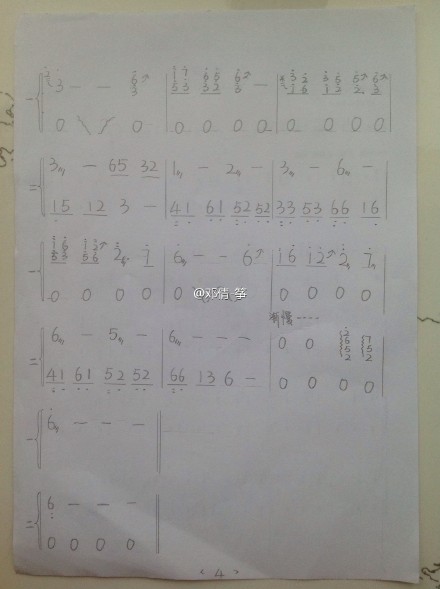 一 3 - - 6 | 1 7 6 5 6 - | 3 2 3 5 5 6
0 \ / 0 | 0 0 0 0 | 0 0 0 0
二 3 - 65 32 | 1 - 2 - | 3 - 6 -
15 12 3 - | 41 61 52 52 | 33 53 66 16
一 1 6 1 2 2 7 | 6 - - 6 | 16 12 2 7
0 0 0 0 | 0 0 0 0 | 0 0 0 0
@邓倩-筝
渐慢----
二 6 - 5 - | 6 - - - | 0 0 2652 752
41 61 52 52 | 66 13 6 - | 0 0 0 0
一 6 - - -
二 6 - - -
0 0 0 0
< 4 >